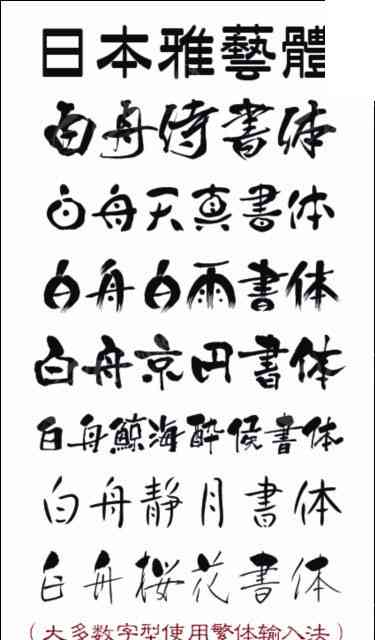 日本雅藝體
白舟侍書体
白舟天真書体
白舟白雨書体
白舟京円書体
白舟鯨海酔侯書体
白舟静月書体
白舟桜花書体
(大多数字型使用繁体输入法)